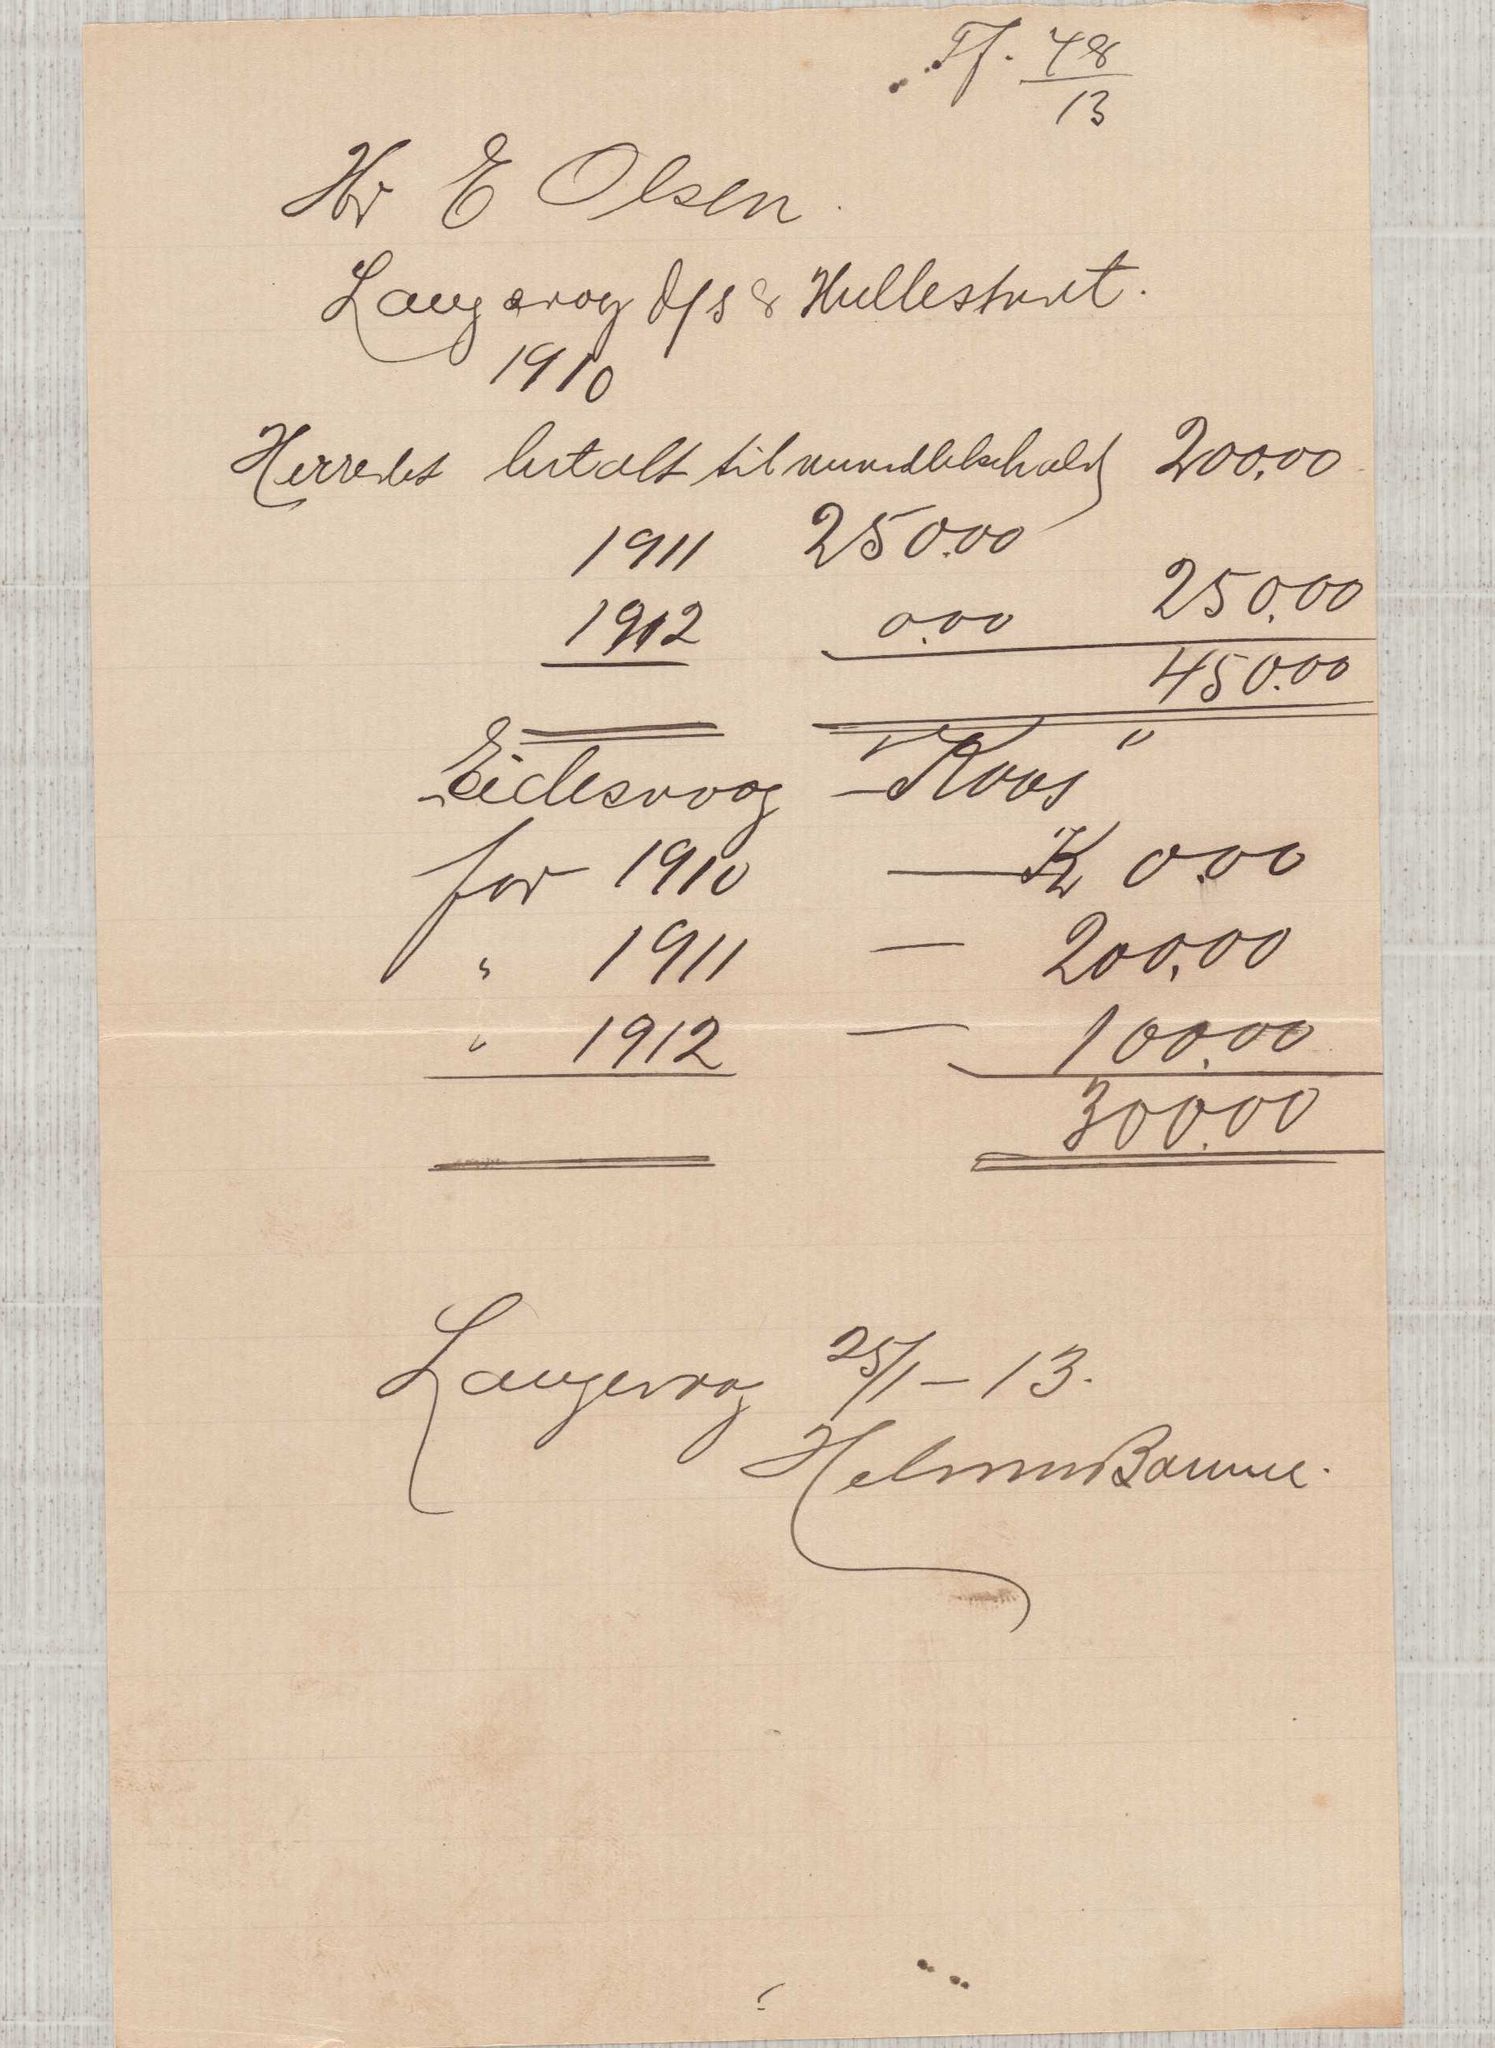 Tf. 48/13
Hr E Olsen.
Langevog d/s & Hullestvet.
1910
Herredet betalt til vedlikehold 200.00
1911 250.00
250.00
1912 0.00
450.00
Eidesvog "Roos"
for 1910 — Kr 0.00
" 1911 — 200.00
" 1912 — 100.00
300.00
Langevog 25/1 – 13.